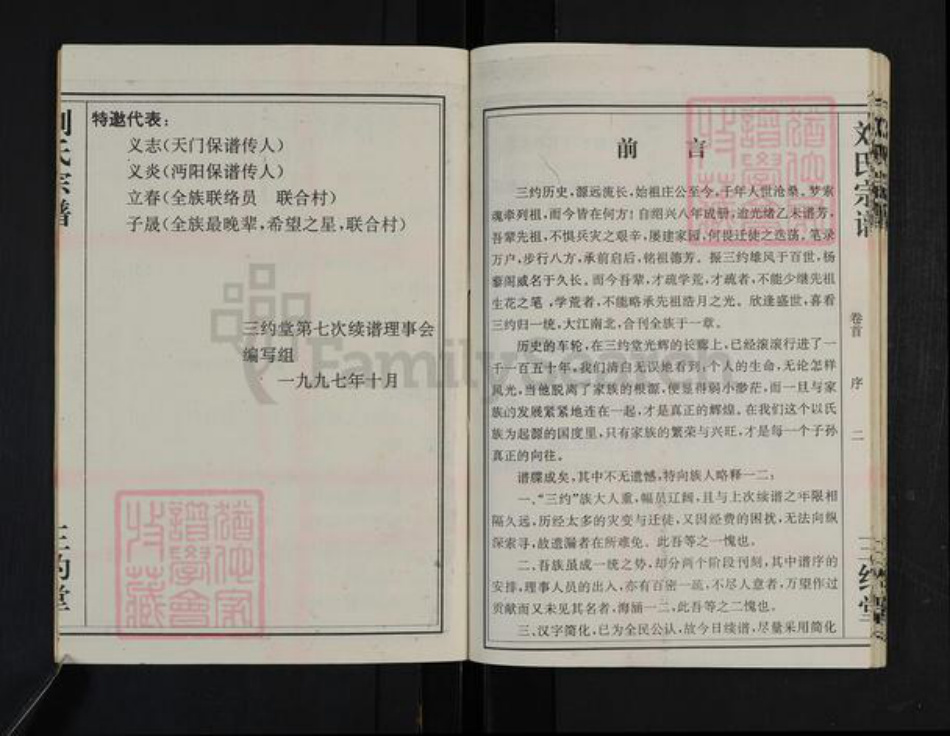 刘氏宗谱
三约堂
特邀代表：
义志(天门保谱传人)
义炎(沔阳保谱传人)
立春(全族联络员　联合村)
子晟(全族最晚辈,希望之星,联合村)
三约堂第七次续谱理事会
编写组
一九九七年十月
FamilySearch
猶他家
譜學會
收藏
前　言
三约历史,源远流长,始祖庄公至今,千年人世沧桑。梦索
魂牵列祖,而今皆在何方!自绍兴八年成册,迨光绪乙未谱芳,
吾辈先祖,不惧兵灾之艰辛,屡建家园,何畏迁徙之迭荡。笔录
万户,步行八方,承前启后,铭祖德芳。振三约雄风于百世,杨
藜阁威名于久长。而今吾辈,才疏学荒,才疏者,不能少继先祖
生花之笔,学荒者,不能略承先祖皓月之光。欣逢盛世,喜看
三约归一统,大江南北,合刊全族于一章。
历史的车轮,在三约堂光辉的长廊上,已经滚滚行进了一
千一百五十年,我们清白无误地看到,个人的生命,无论怎样
风光,当他脱离了家族的根源,便显得弱小渺茫,而一旦与家
族的发展紧紧地连在一起,才是真正的辉煌。在我们这个以氏
族为起源的国度里,只有家族的繁荣与兴旺,才是每一个子孙
真正的向往。
谱牒成矣,其中不无遗憾,特向族人略释一二:
一、“三约”族大人重,幅员辽阔,且与上次续谱之年限相
隔久远,历经太多的灾变与迁徙,又因经费的困扰,无法向纵
深索寻,故遗漏者在所难免。此吾等之一愧也。
二、吾族虽成一统之势,却分两个阶段刊刻,其中谱序的
安排,理事人员的出入,亦有百密一疏,不尽人意者,万望作过
贡献而又未见其名者,海涵一二,此吾等之二愧也。
三、汉字简化,已为全民公认,故今日续谱,尽量采用简化
猶他家
譜學會
收藏
刘氏宗谱
卷首
序
二
三约堂